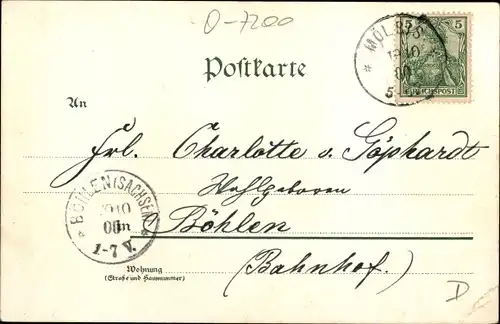 O-7200
MÖLBIS
5 5
19 10
00
5-
REICHSPOST
Postkarte
An
Frl. Charlotte v. Göphardt
Wohlgeboren
BÖHLEN (SACHSEN)
10
00
1-7 V.
in Böhlen
(Bahnhof.)
Wohnung
(Straße und Hausnummer)
D